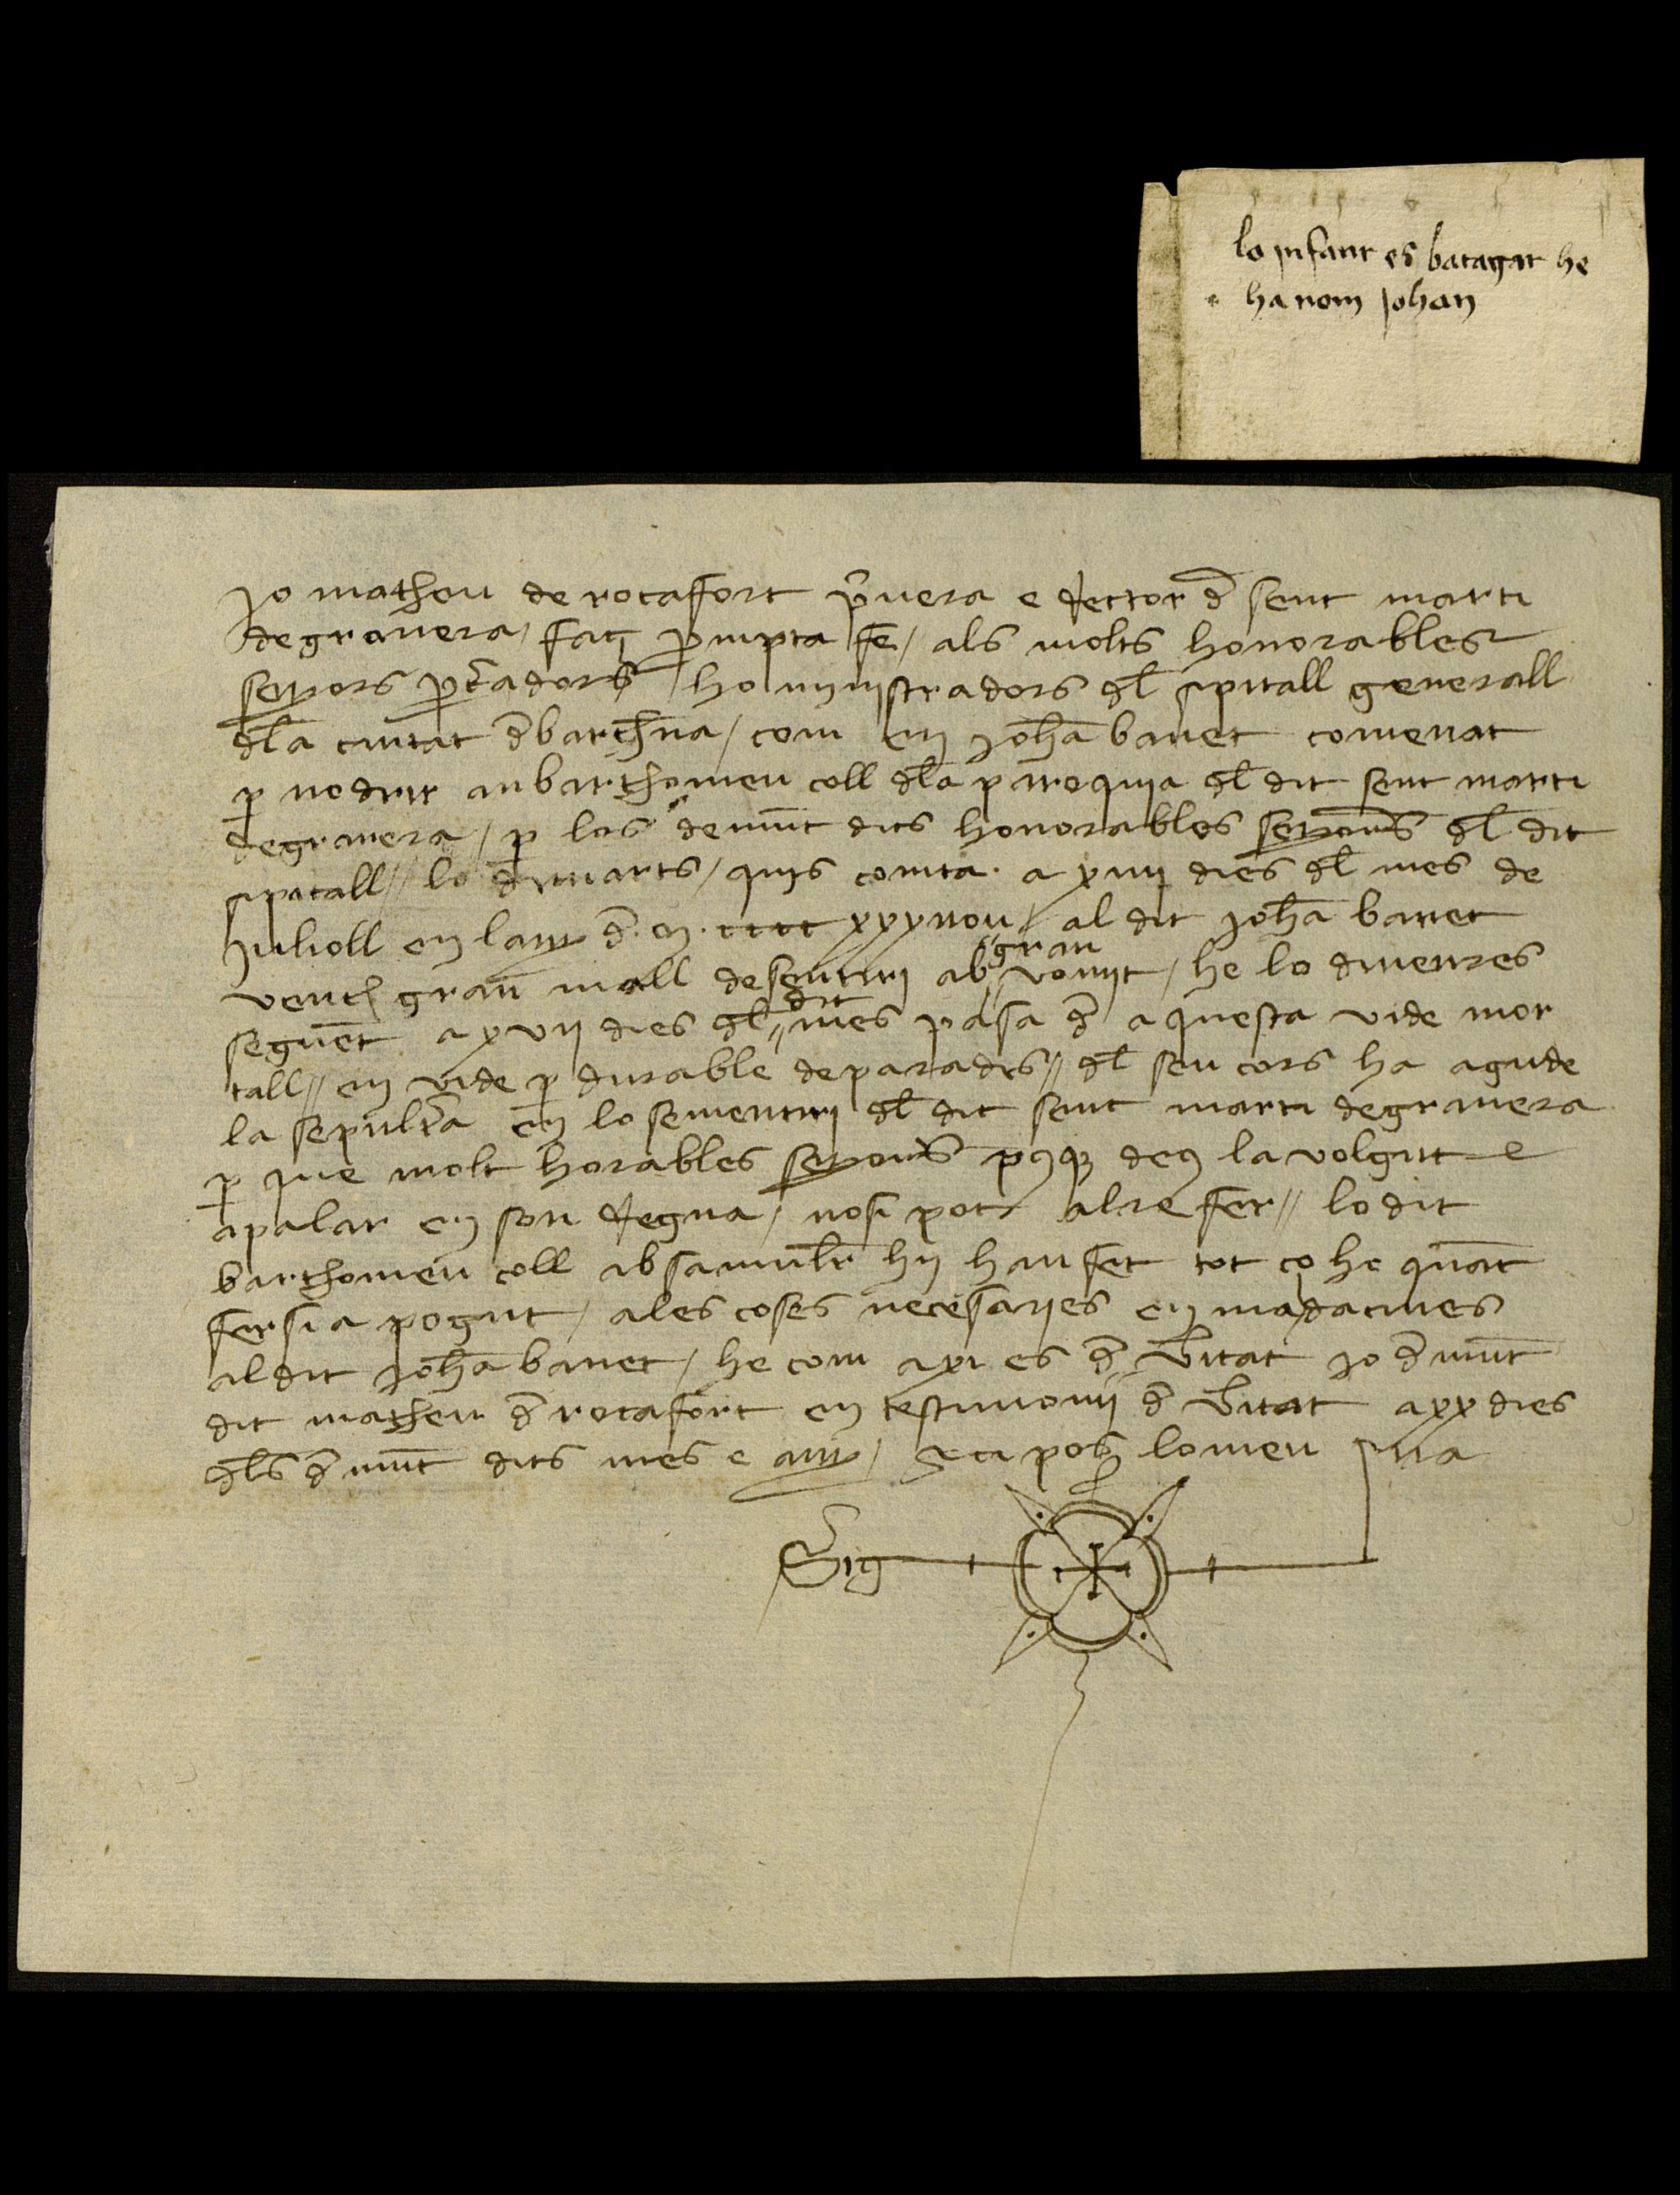 lo infant es bategat he
ha nom Johan
Jo matheu de rocaffort pͥvera e Rector d̄ sent marti
de gravera / fatz promta fe / als molts honorables
senyors pͬcͣadors / ho mjnistradors dl̄ spitall generall
dl̄a ciutat d̄ barchn̄a / com en Johā banet comenat
ꝑ nodrir an barthomeu coll dl̄a paroquia dl̄ dit sent marti
de gravera / ꝑ los demūt dits honorables senyors dl̄ dit
spitall // lo dimarts / quis comta . a xiiij dies dl̄ mes de
Julioll en lany d̄ . m . cccc xxxnou / al dit Johā banet
vench gran mall de sentiri ab gran vomit / he lo divenres
seguēt a xvij dies dl̄ dit mes pasa d̄ aquesta vide mor
tall // en vide ꝑ durable de paradis // dl̄ seu cors ha agude
la sepultͬa en lo sementiri dl̄ dit sent marti de gravera
ꝑ que molt horables senyors pꝯ deꝯ la volgut
apalar en son Regna / nosi pot alre fer // lo dit
barthomeu coll ab sa mulr̄ hy han fet tot ço he quāt
fer si a pogut / a les coses necesaries en madacines
al dit Johā banet / he com axi es d̄ v̄itat jo d̄mūt
dit matheu d̄ rocafort en testimonij d̄ v̄itat a xx dies
dl̄s d̄mūt dits mes e any / aci pos lo meu
Sig na